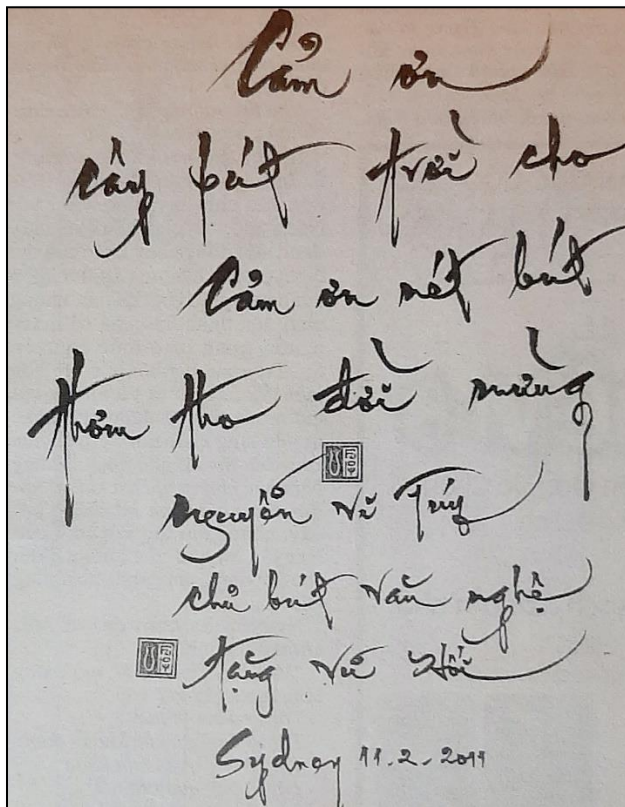 Cảm ơn
cây bút trời cho
Cảm ơn nét bút
thơm tho đời mừng
Nguyễn Vi Túy
chủ bút văn nghệ
tặng Vũ Hối
Sydney 11-2-2011